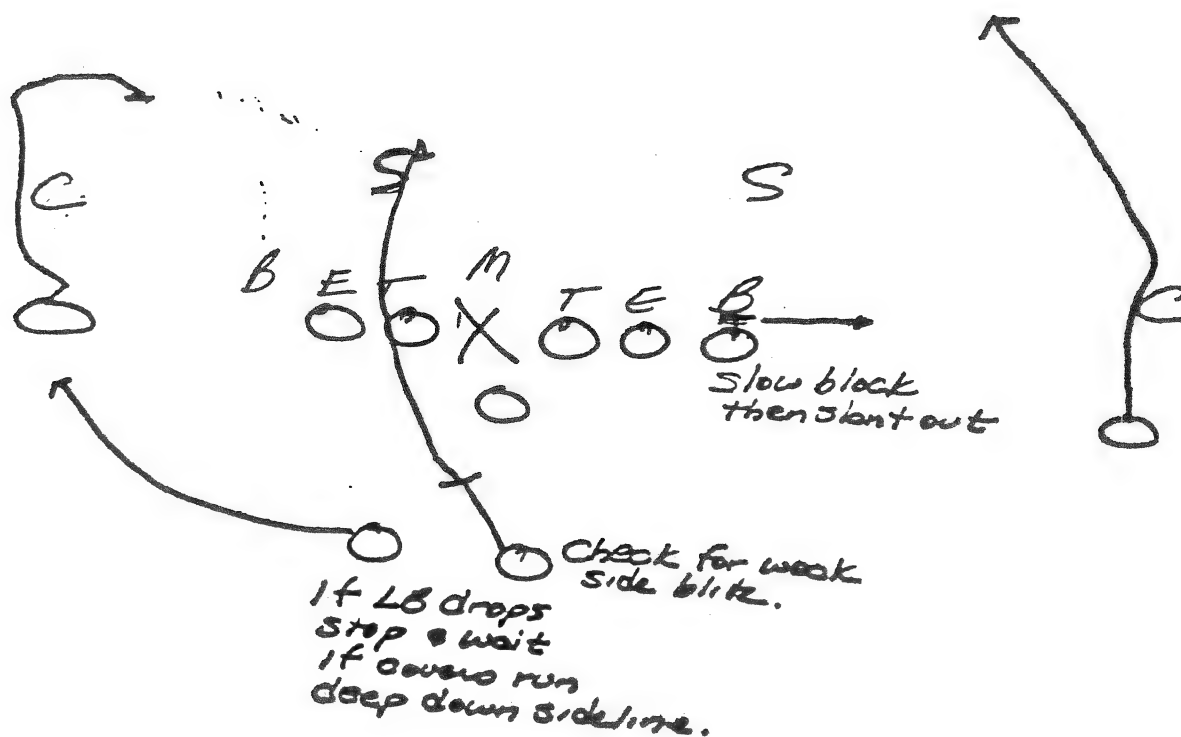 C
S
S
B E T M T E B
C
slow block
then slant out
check for weak
side blitz.
If LB drops
stop • wait
If covers run
deep down sideline.